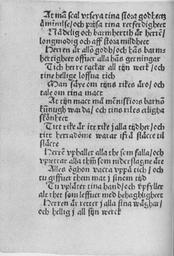 At mā scal vtseya tina stora godheetz
åminnilse/ och prijsa tina retferdigheet
Nådelig och barmhertig är herren/
longmodig och aff stoora mildheet
Herren är allō godh/ och hans barm
hertigheet offuer alla hans gerningar
Tich herre tackar all tijn werk/ och
tine helige loffua tich
tijns rikes äro/ och
tale om tina mact
At tijn mact må mēniskiors barnō
kunnigh warda/ och tins rikes ärligha
skönheet
Titt rike är itt rike j alla tijdher/ och
titt herradöme warar ifrå slächt til
slächt
Herrē vphåller alla the som falla/ och
vprettar alla thē som nederslagne äre
Alles öghon vacta vppå tich/ och
tu giffuer them mat j sinom tid
Tu vplåter tina hand/ och vpfyller
alla the som leffue med behaghligheet
Herren är j alla sina wäghar/
och helig j all sijn werk